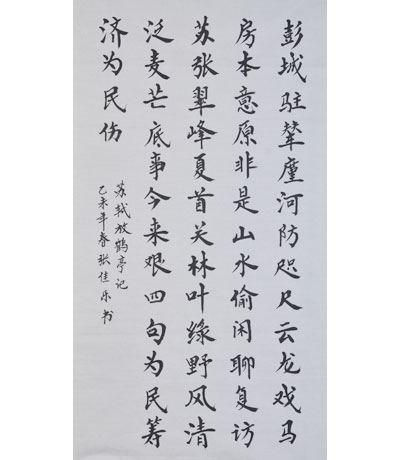 彭城驻辇廑河防咫尺云龙戏马
房本意原非是山水偷闲聊复访
苏张翠峰夏首关林叶绿野风清
泛麦芒底事今来艰四句为民筹
济为民伤
苏轼放鹤亭记
乙未年春张佳乐书